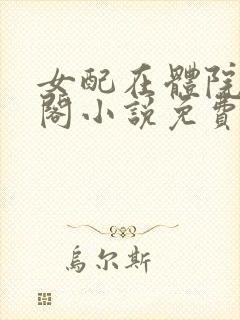 女配在體院
閣小說免費
烏尔斯